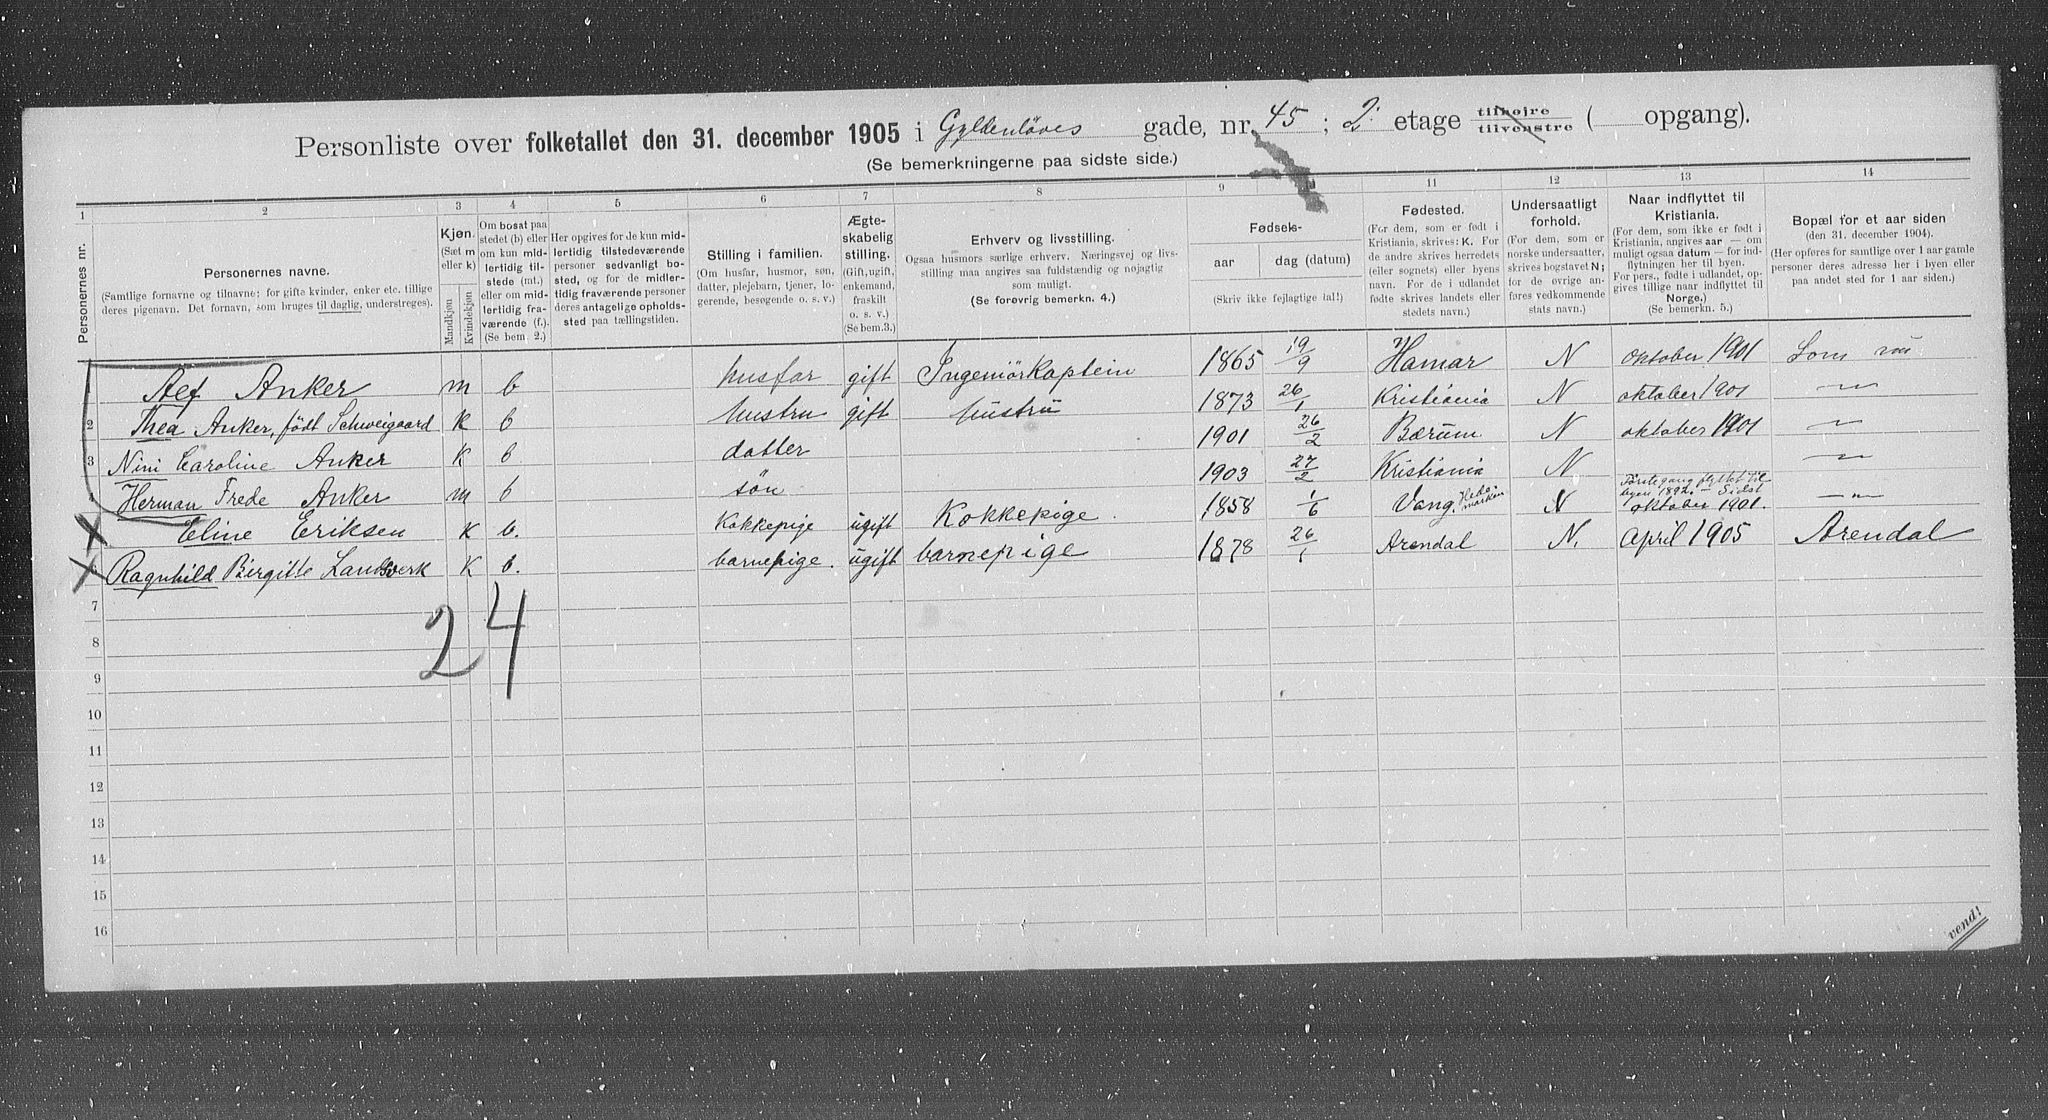 Personliste over folketallet den 31. december 1905 i Gyldenløves gade, nr. 45; 2. etage tilhøjre tilvenstre ( opgang).
(Se bemerkningerne paa sidste side.)
1 2 3 4 5 6 7 8 9 11 12 13 14
Personernes nr.
Personernes navne.
(Samtlige fornavne og tilnavne; for gifte kvinder, enker etc. tillige
deres pigenavn. Det fornavn, som bruges til daglig, understreges).
Kjøn.
(Sæt m
eller k)
Mandkjøn
Kvindekjøn
Om bosat paa
stedet (b) eller
om kun mid-
lertidig til-
stede (mt.)
eller om mid-
lertidig fra-
værende (f.)
(Se bem. 2.)
Her opgives for de kun mid-
lertidig tilstedeværende
personer sedvanligt bo-
sted, og for de midler-
tidig fraværende personer
deres antagelige opholds-
sted paa tællingstiden.
Stilling i familien.
(Om husfar, husmor, søn,
datter, plejebarn, tjener, lo-
gerende, besøgende o. s. v.)
Ægte-
skabelig
stilling.
(Gift, ugift,
enkemand,
fraskilt
o. s. v.)
(Se bem.3.)
Erhverv og livsstilling.
Ogsaa husmors særlige erhverv. Næringsvej og livs-
stilling maa angives saa fuldstændig og nøjagtig
som muligt.
(Se forøvrig bemerkn. 4.)
Fødsels-
aar dag (datum)
(Skriv ikke fejlagtige tal!)
Fødested.
(For dem, som er født i
Kristiania, skrives: K. For
de andre skrives herredets
(eller sognets) eller byens
navn. For de i udlandet
fødte skrives landets eller
stedets navn.)
Undersaatligt
forhold.
(For dem, som er
norske undersaatter,
skrives bogstavet N;
for de øvrige an-
føres vedkommende
stats navn.)
Naar indflyttet til
Kristiania.
(For dem, som ikke er født i
Kristiania, angives aar — om
muligt ogsaa datum — for ind-
flytningen her til byen.
For pers., fødte i udlandet, op-
gives tillige naar indflyttet til
Norge.)
(Se bemerkn. 5.)
Bopæl for et aar siden
(den 31. december 1904).
(Her opføres for samtlige over 1 aar gamle
personer deres adresse her i byen eller
paa andet sted for 1 aar siden.)
Alf Anker m b husfar gift Ingeniörkaptein 1865 19/9 Hamar N oktober 1901 Som nu
2 Thea Anker, födt Schweigaard k b hustru gift hustrü 1873 26/1 Kristiania N oktober 1901 —"—
3 Nini Caroline Anker k b datter 1901 26/2 Bærum N oktober 1901 —"—
Herman Frede Anker m b sön 1903 27/2 Kristiania N —"—
Eline Eriksen k b. Kokkepige ugift Kokkepige. 1858 1/6 Vang, Hedemarken N Förste gang flyttet til byen 1892. – Sidst oktober 1901. —"—
Ragnhild Birgitte Landsverk k b. barnepige. ugift barnepige 1878 26/1 Arendal N. April 1905 Arendal
24
7
8
9
10
11
12
13
14
15
16
vend!